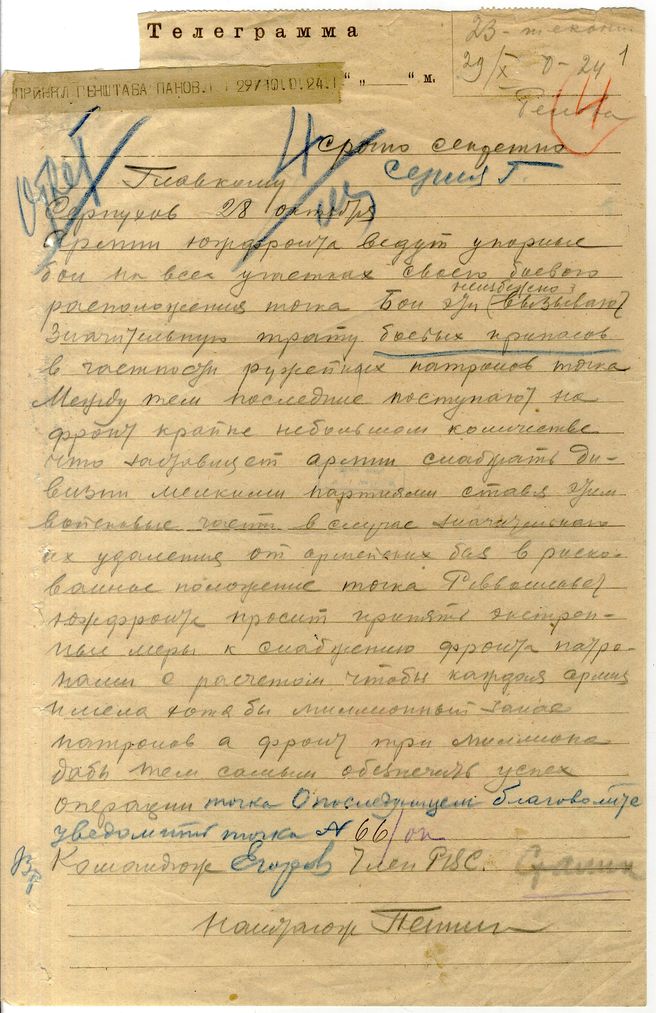 Телеграмма
29/X 0-24 1
ПРИНЯЛ ГЕНШТАБА ПАНОВ. 29/10.0.24.
" „ “ м.
4
Срочно секретно
ответ
Главкому Серия Г.
Серпухов 28 октября
Армии Южфронта ведут упорные
бои на всех участках своего боевого
расположения точка Бои эти неизбежно вызывают
значительную трату боевых припасов
в частности ружейных патронов точка
Между тем последние поступают на
фронт крайне небольшом количестве
что заставляет армии снабжать ди-
визии мелкими партиями ставя этим
войсковые части в случае значительного
их удаления от армейских баз в риско-
ванное положение точка Реввоенсовет
Южфронта просит принять экстрен-
ные меры к снабжению фронта патро-
нами с расчетом чтобы каждая армия
имела хотя бы миллионный запас
патронов а фронт три миллиона
дабы тем самым обеспечить успех
операции точка О последующем благоволите
уведомить точка № 66/оп
Командюж Егоров Член РВС. Сталин
Наштаюж Петин